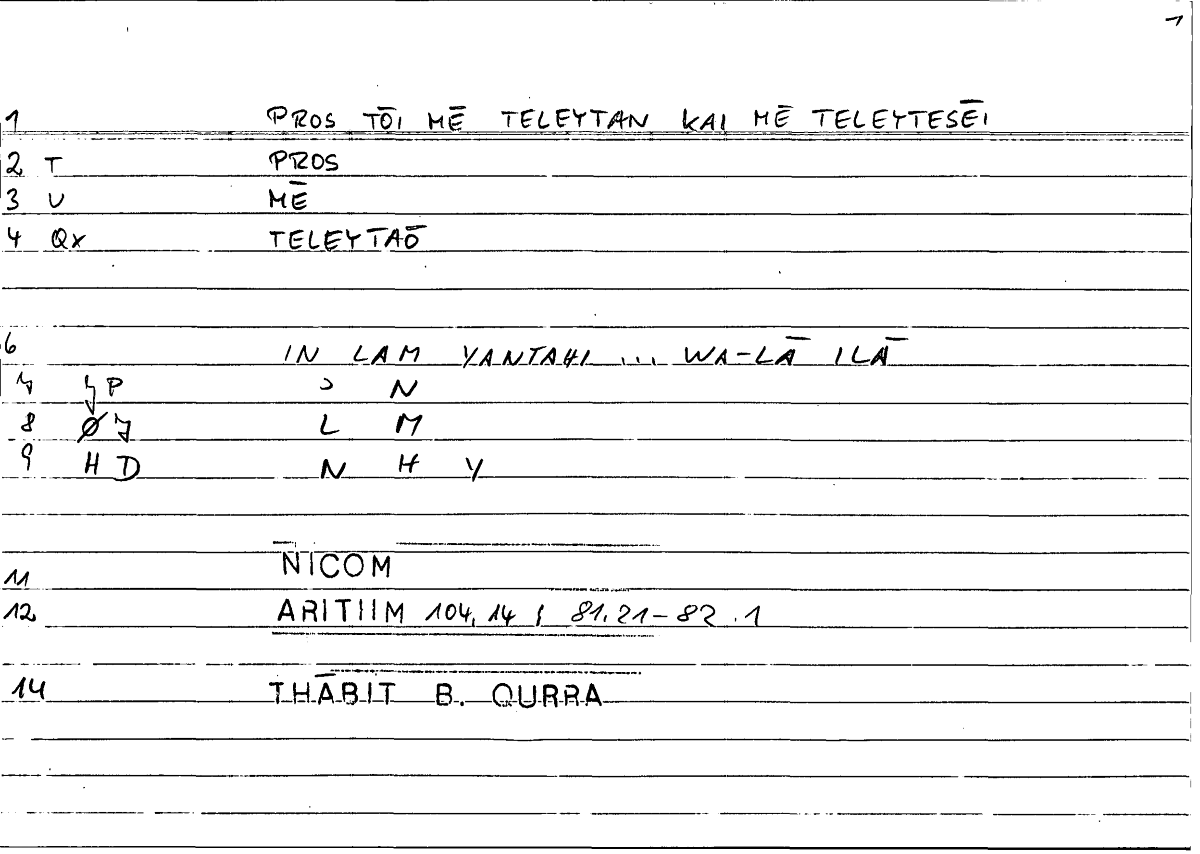 1
1 PROS TŌI MĒ TELEYTAN KAI MĒ TELEYTESĒI
2 T PROS
3 U MĒ
4 Qx TELEYTAŌ
6 IN LAM YANTAHI ... WA-LĀ ILĀ
7 P ʾ N
8 Ø L M
9 H D N H Y
11 NICOM
12 ARITIIM 104,14 ; 81.21-82.1
14 THĀBIT B. QURRA